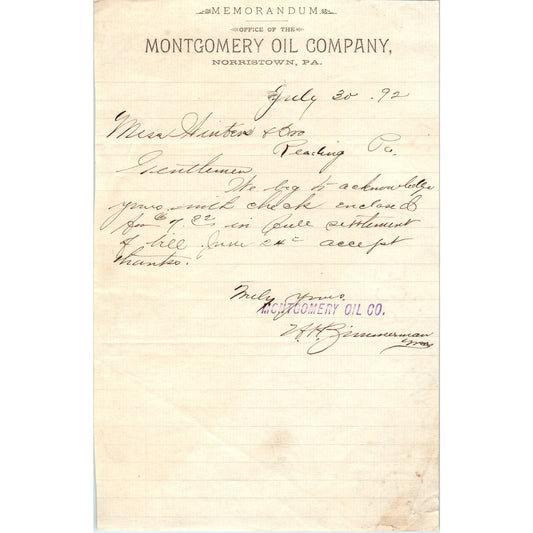 MEMORANDUM
OFFICE OF THE
MONTGOMERY OIL COMPANY,
NORRISTOWN, PA.
July 30 .92
Mess & Bro
Reading Pa.
Gentlemen
We beg to acknowledge
yours with check enclosed
for $7. in full settlement
of bill June 24th accept
thanks.
Truly yours
MONTGOMERY OIL CO.
H.H. Zimmerman